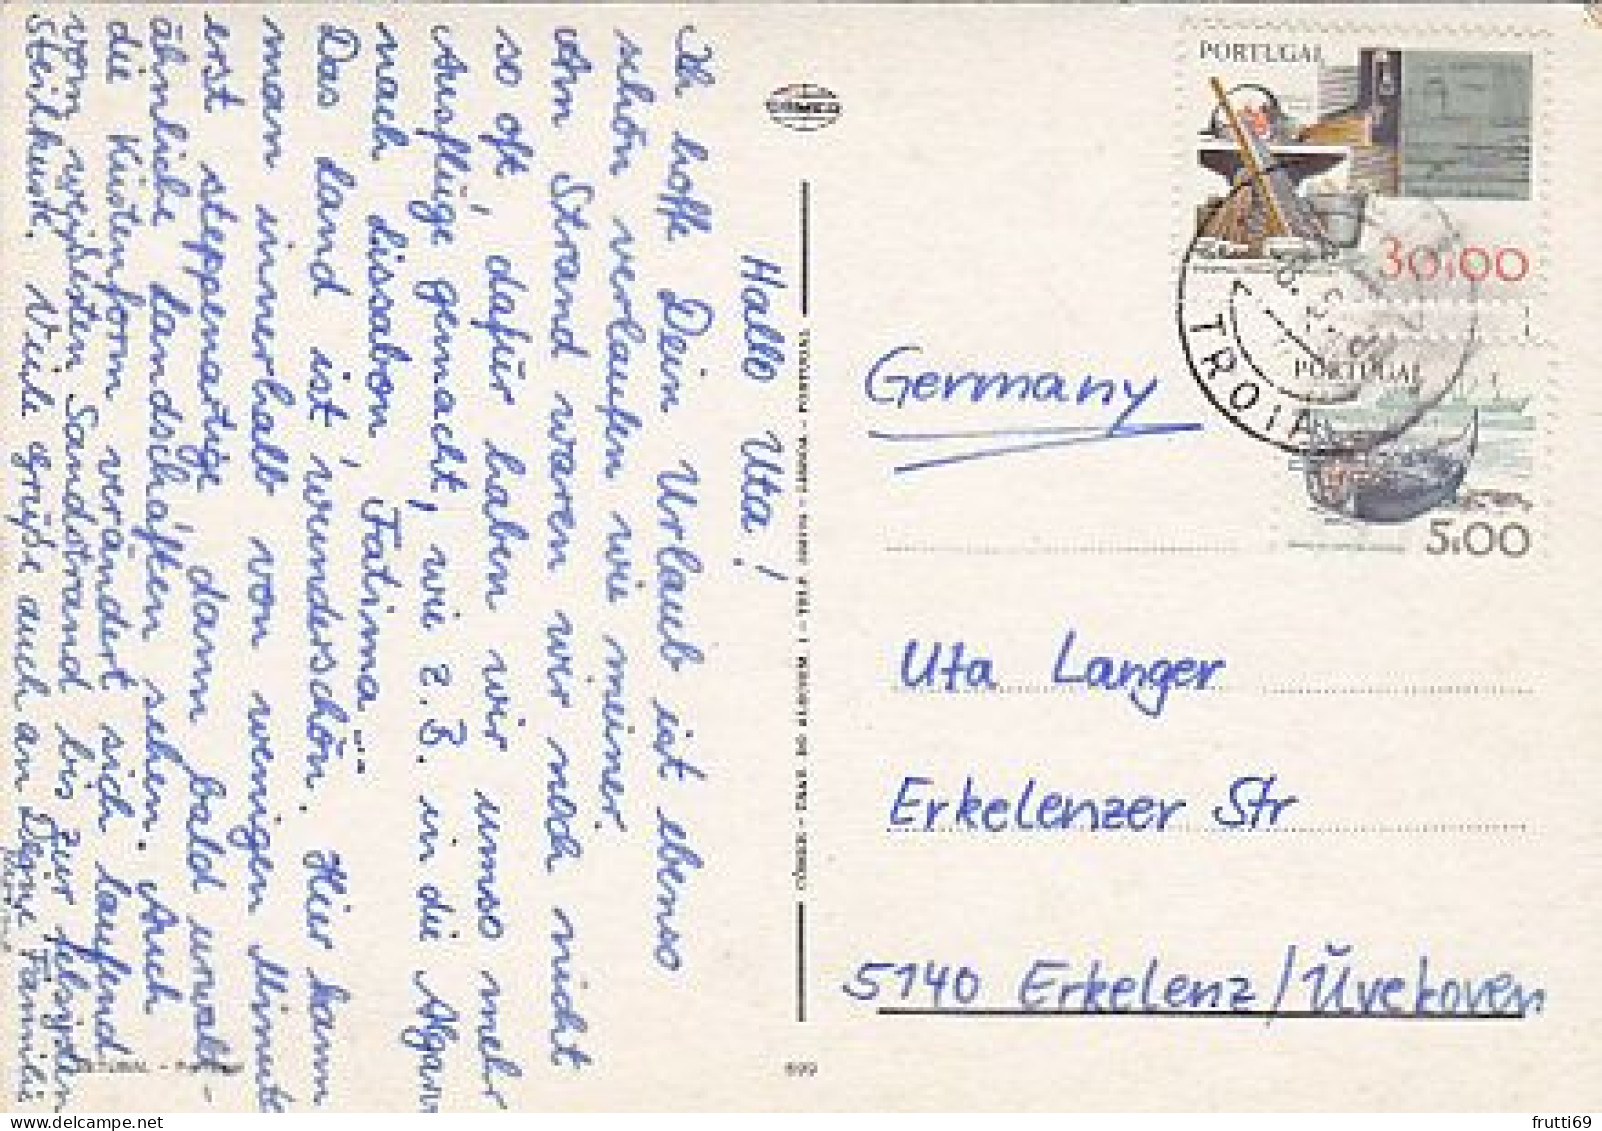 Hallo Uta!
Ich hoffe Dein Urlaub ist ebenso
schön verlaufen wie meiner.
Am Strand waren wir noch nicht
so oft, dafür haben wir umso mehr
Ausflüge gemacht, wie z.B. in die Algarve
nach Lissabon, Fatima ...
Das Land ist wunderschön. Hier kann
man innerhalb von wenigen Minuten
erst steppenartige dann bald urwald-
ähnliche Landschaften sehen. Auch
die Küstenform verändert sich laufend
vom weißesten Sandstrand bis zur felsigsten
Steilküste. Viele Grüße auch an Deine Familie
Martina
COMER
PORTUGAL
30.00
TROIA
PORTUGAL
5.00
Germany
Uta Langer
Erkelenzer Str
5140 Erkelenz/Üvekoven
SETUBAL - Portugal
699
frutti69